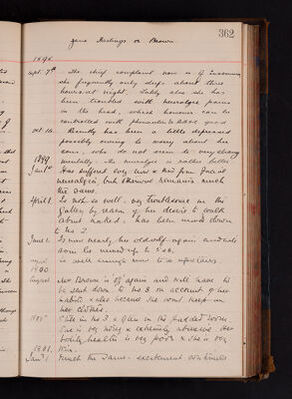 362
Jane Hastings or Brown
1898.
Sept. 7th The chief complaint now is of insomnia
she frequently only sleeps about three
hours at night. Lately also she has
been troubled with neuralgic pains
in the head, which however can be
controlled with phenacetin
Oct. 14. Recently has been a little depressed
possibly owing to worry about her
son, who does not seem to be very strong
mentally. The neuralgia is rather better
1899
Jany 1st Has suffered very much from facial
neuralgia but otherwise remains much
the same.
April 1. Is not so well. very troublesome in the
Gallery by reason of her desire to walk
about naked. has been moved down
to No 2.
June 1. Is now nearly her old self again and has
been
is well enough now to be upstairs
1900
August Mrs Brown is off again and will have to
be sent down to No 3 on account of her
habits & also because she wont keep on
her clothes.
Still in No 3 & often in the padded room
She is very noisy & extremely abusive. Her
bodily health is very poor & she is very
thin.
1901.
Jany 1 Much the same. excitement continues